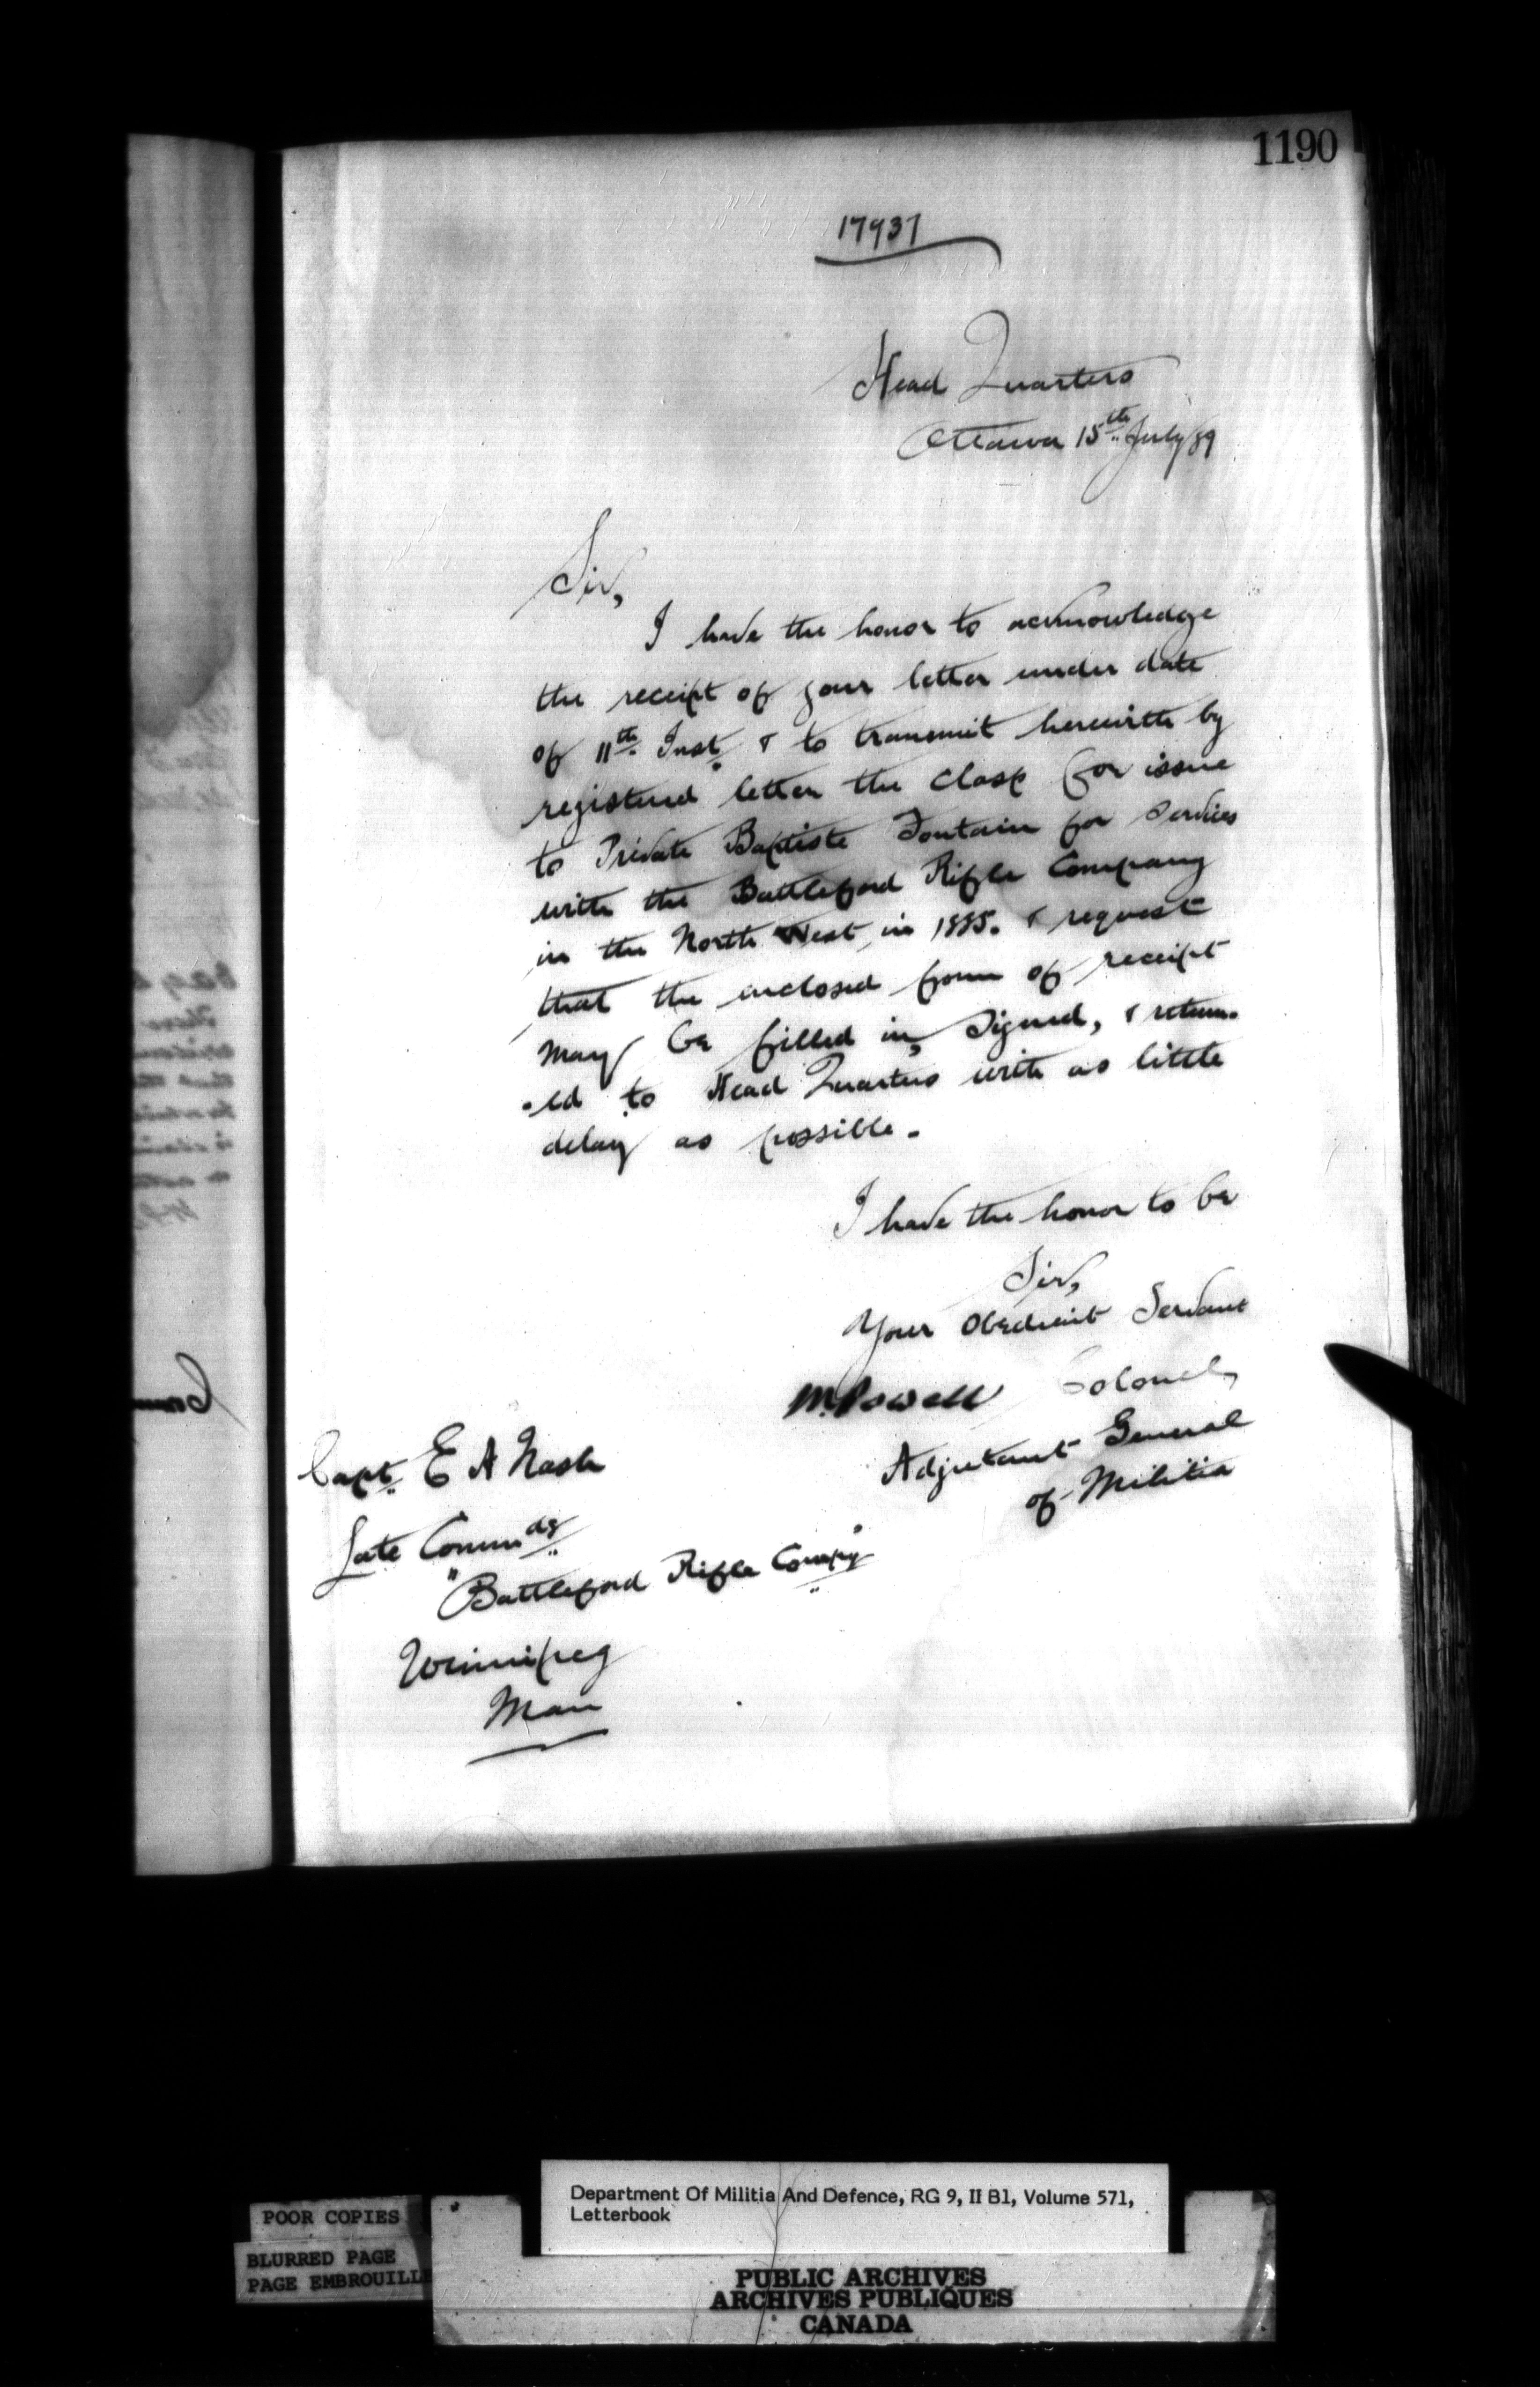 1190
17937
Head Quarters
Ottawa 15th July/89
Sir,
I have the honor to acknowledge
the receipt of your letter under date
of 11th Inst. & to transmit herewith by
registered letter the Clasp for issue
to Private Baptiste Fontain for Services
with the Battleford Rifle Company
in the North West in 1885. & request
that the enclosed form of receipt
may be filled in, Signed, & return-
-ed to Head Quarters with as little
delay as possible.
I have the honor to be
Sir,
Your Obedient Servant
M. Powell Colonel,
Adjutant General
of Militia
Capt. E A Nash
Late Commdg
"Battleford Rifle Compy"
Winnipeg
Man
POOR COPIES
BLURRED PAGE
PAGE EMBROUILLE
Department Of Militia And Defence, RG 9, II B1, Volume 571,
Letterbook
PUBLIC ARCHIVES
ARCHIVES PUBLIQUES
CANADA